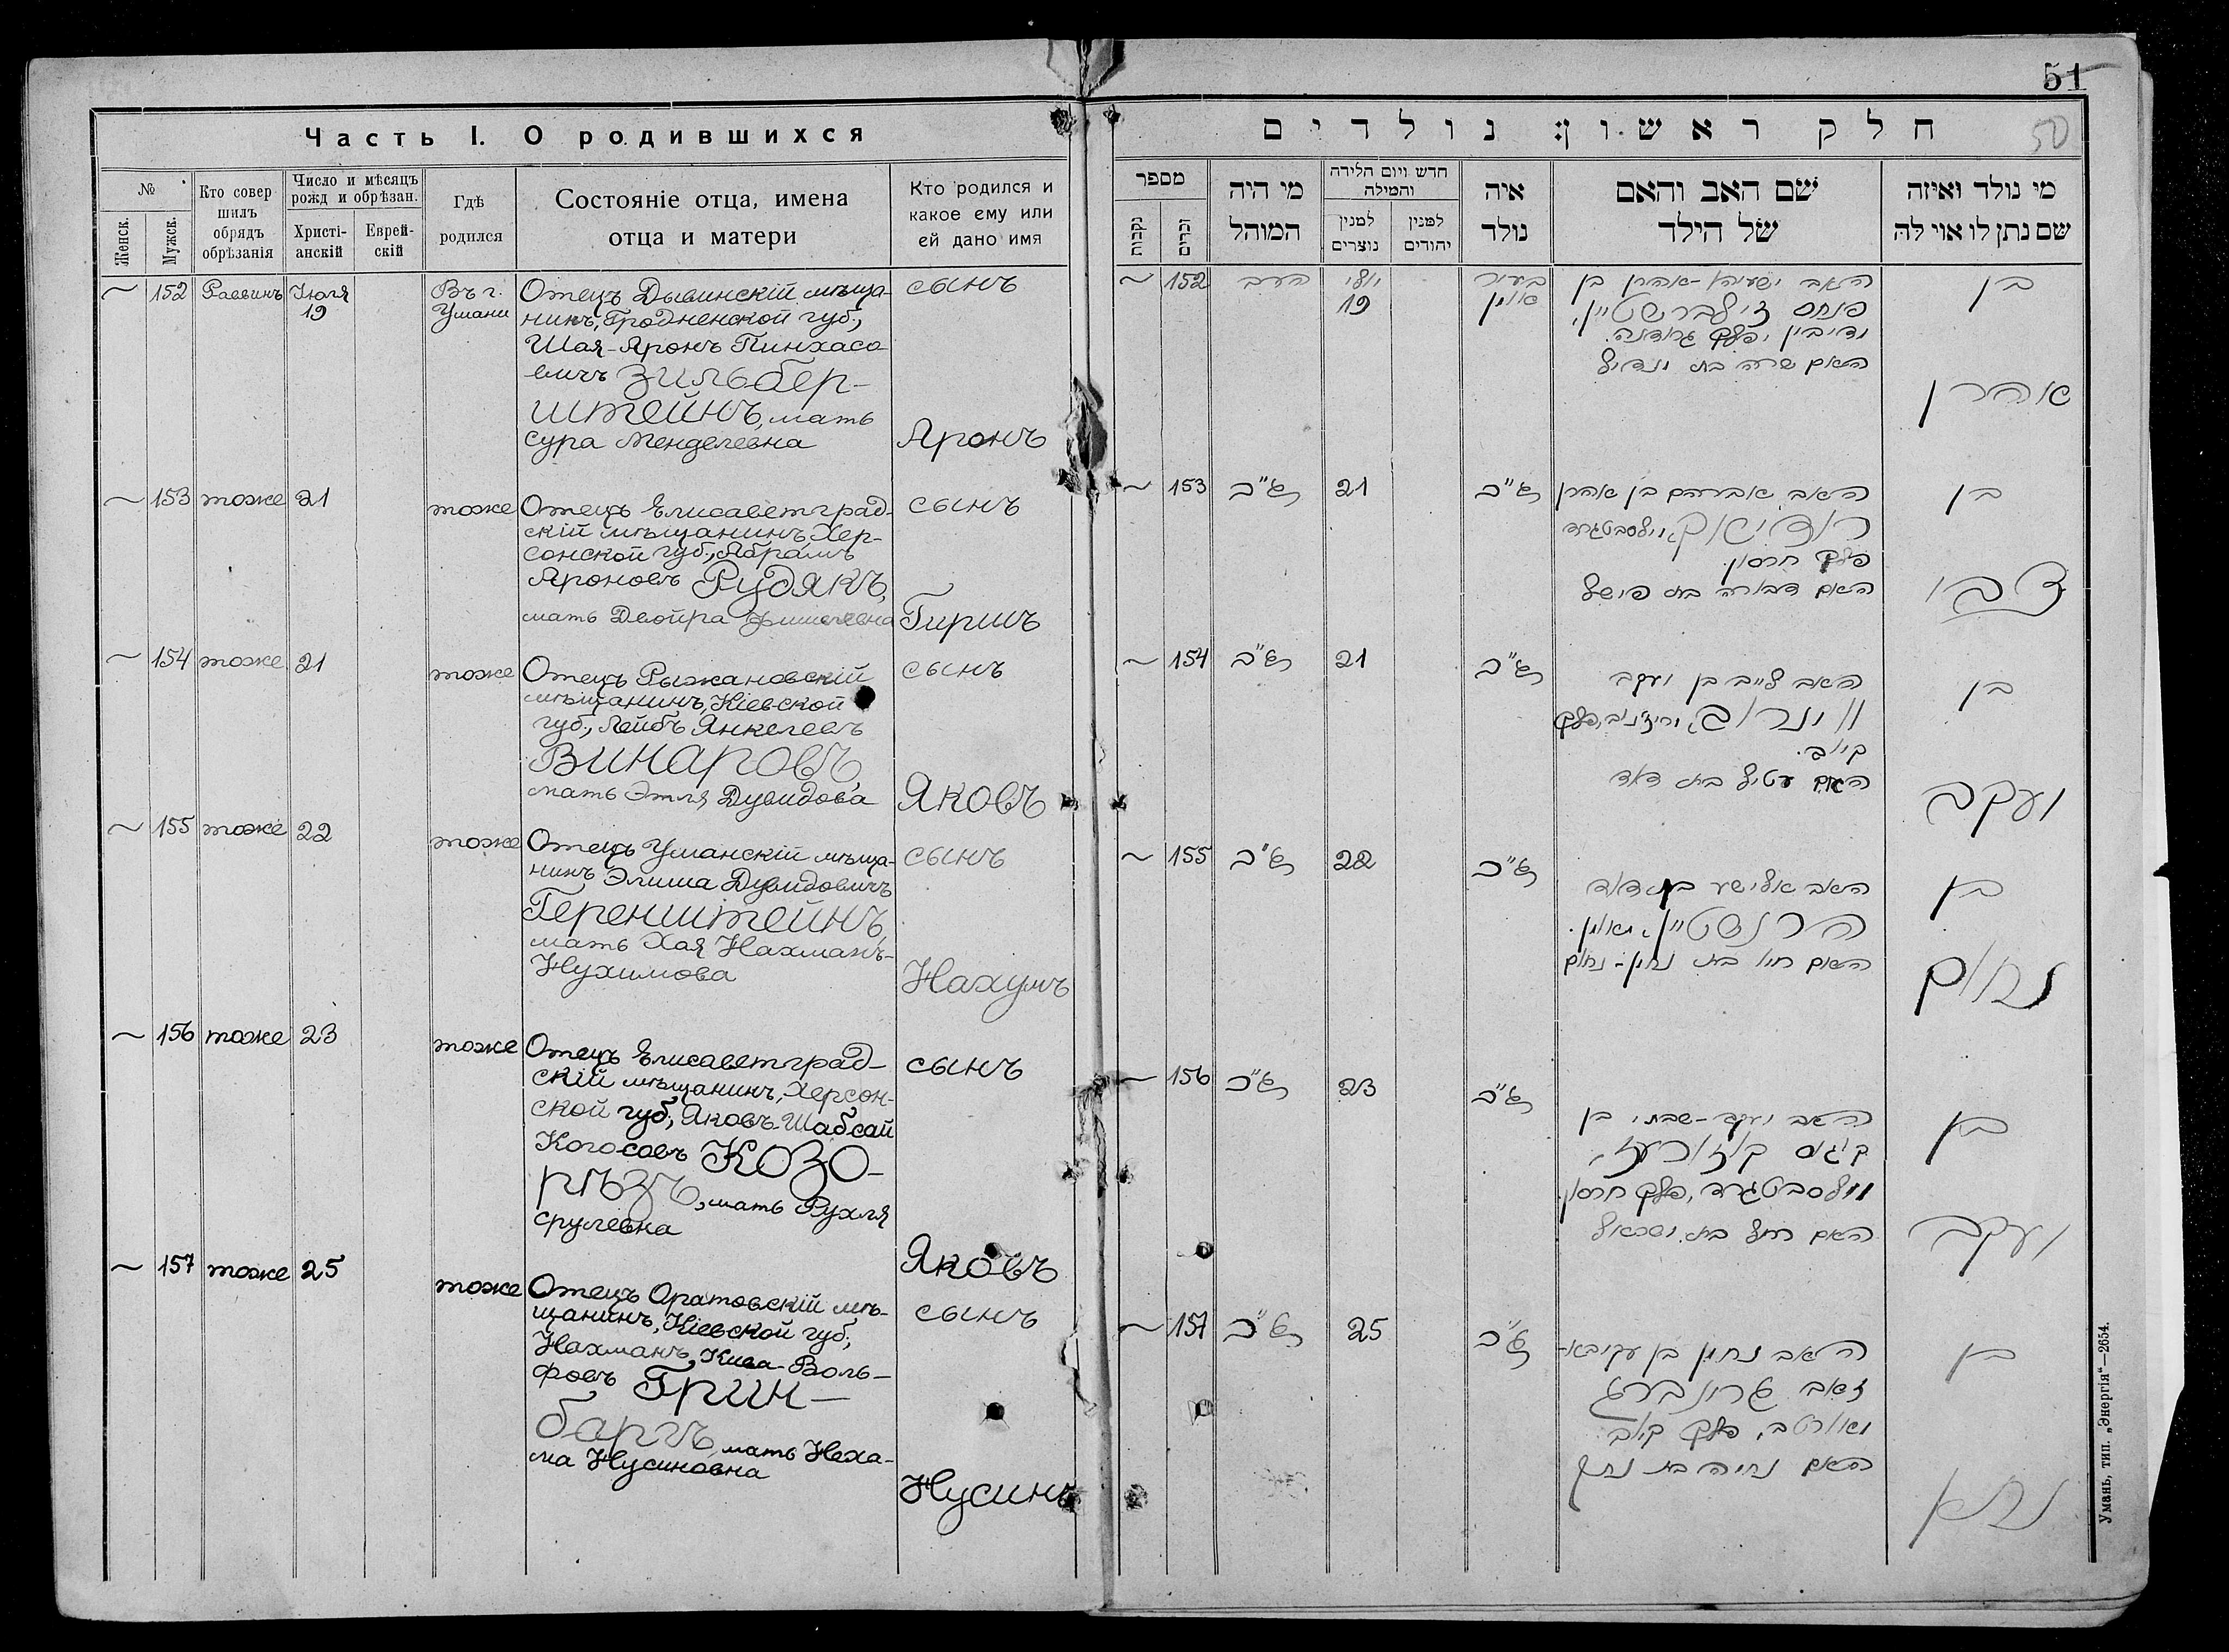 51
50
Часть I. О родившихся
№
Женск.
Мужск.
Кто совер
шилъ
обрядъ
обрѣзанія
Число и мѣсяцъ
рожд и обрѣзан.
Христі-
анскій
Еврей-
скій
Гдѣ
родился
Состояніе отца, имена
отца и матери
Кто родился и
какое ему или
ей дано имя
152 Раввинъ Іюля
19
Въ г.
Умани
Отецъ Дывинскій мѣща-
нинъ, Гродненской губ.,
Шая-Аронъ Пинхасо
вичъ Зильбер-
штейнъ, мать
Сура Менделевна
сынъ
Аронъ
153 тоже 21 тоже
Отецъ Елисаветград-
скій мѣщанинъ, Хер-
сонской губ., Абрамъ
Ароновъ Рудякъ,
мать Двойра Фишелевна
сынъ
Гиршъ
154 тоже 21 тоже
Отецъ Рыжановскій
мѣщанинъ, Кіевской
губ., Лейбъ Янкелевъ
Винаровъ,
мать Этля Дувидова
сынъ
Яковъ
155 тоже 22 тоже
Отецъ Уманскій мѣща-
нинъ Элиша Дувидовичъ
Геренштейнъ,
мать Хая Нахманъ-
Нухимова
сынъ
Нахумъ
156 тоже 23 тоже
Отецъ Елисаветград-
скій мѣщанинъ, Херсон-
ской губ., Яковъ-Шабсай
Когосовъ Козо-
рѣзъ, мать Рухля
Срулевна
сынъ
Яковъ
157 тоже 25 тоже
Отецъ Оратовскій мѣ-
щанинъ, Кіевской губ.,
Нахманъ Кива-Воль-
фовъ Грин-
баргъ, мать Неха-
ма Нусиновна
сынъ
Нусинъ
חלק ראשון: נולדים
מספר
נקבות
זכרים
מי היה
המוהל
חדש ויום הלידה
והמילה
למנין
נוצרים
למנין
יהודים
איה
נולד
שם האב והאם
של הילד
מי נולד ואיזה
שם נתן לו או לה
152 הרב יולי
19
בעיר
אומן
האב ישעיה-אהרן בן
פנחס זילברשטיין,
מדיבין, פלך גרודנה.
האם שרה בת מנדיל
בן
אהרן
153 כנ"ל 21 כנ"ל
האב אברהם בן אהרן
רודיאק, מילסבטגרד
פלך חרסון.
האם דבורה בת פישל
בן
צבי
154 כנ"ל 21 כנ"ל
האב לייב בן יעקב
ווינרוב, פלך
קיוב.
האם עטיל בת דוד
בן
יעקב
155 כנ"ל 22 כנ"ל
האב אלישע בן דוד
הרנשטיין, מאומן.
האם חיה בת נחמן-נחום
בן
נחום
156 כנ"ל 23 כנ"ל
האב יעקב-שבתי בן
קוזורעז,
מילסבטגרד, פלך חרסון.
האם רחל בת ישראל
בן
יעקב
157 כנ"ל 25 כנ"ל
האב נחמן בן עקיבא-
זאב גרונברג
מאורטב, פלך קיוב
האם נחמה בת נתן
בן
נתן
Умань, тип. „Энергія“—2654.